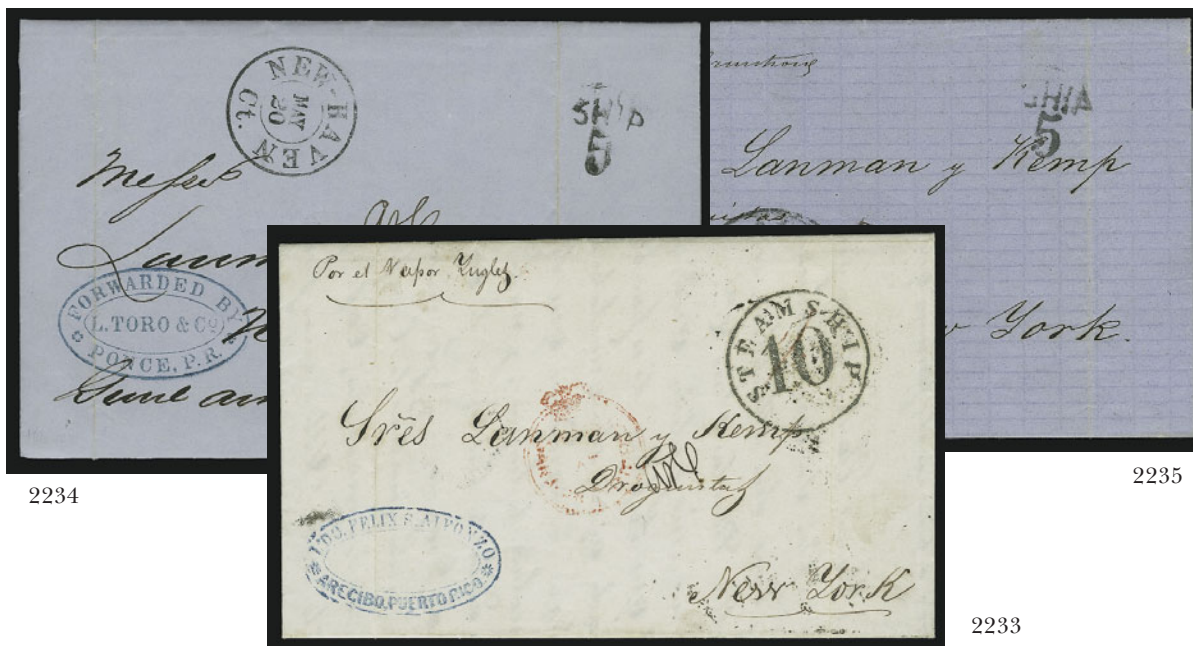 NEW-HAVEN
MAY
20
Ct.
SHIP
5
Messrs
FORWARDED BY
L. TORO & Co
PONCE, P.R.
2234
SHIP
5
Lanman y Kemp
York.
2235
Por el Vapor Ingles
STEAMSHIP
10
Srēs Lanman y Kemp
Droguistas
LDO. FELIX S. ALFONZO
ARECIBO, PUERTO RICO
New York
2233